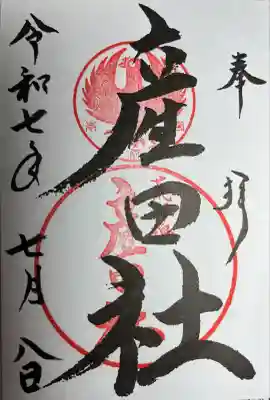 奉拝
産田社
令和七年 七月八日